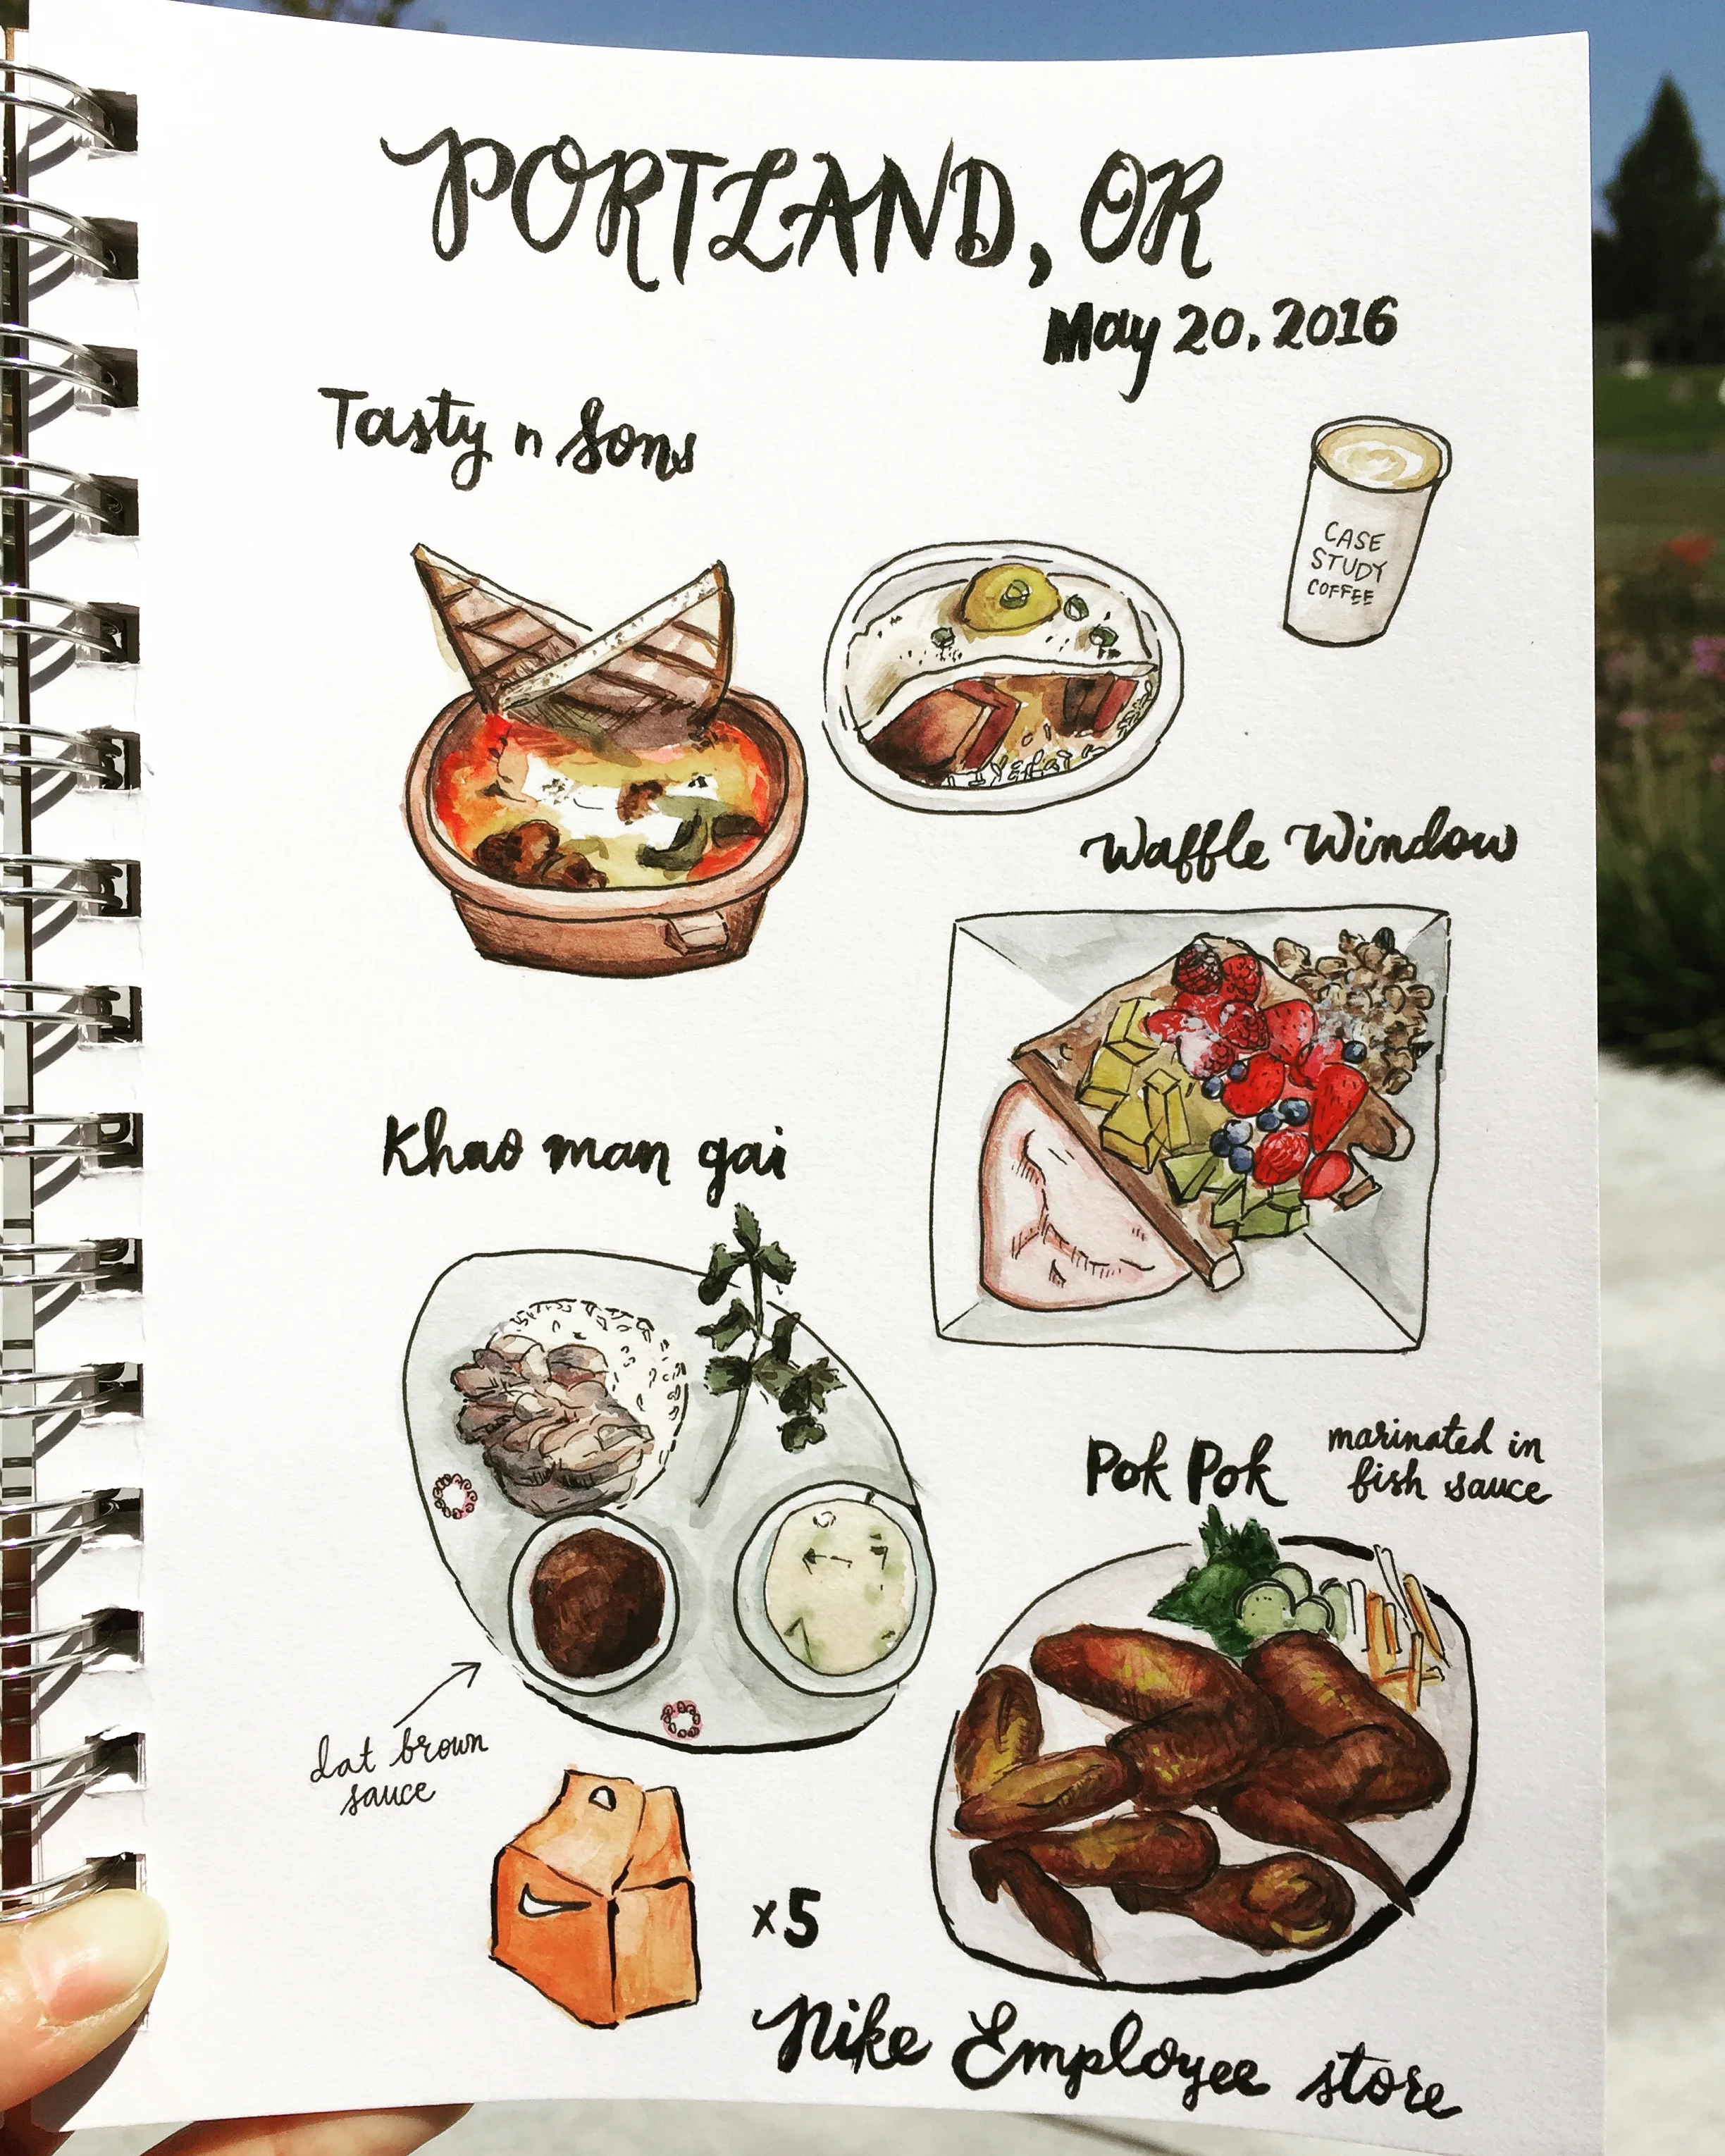 PORTLAND, OR
May 20. 2016
Tasty n Sons
CASE
STUDY
COFFEE
Waffle Window
Khao man gai
Pok Pok
marinated in
fish sauce
dat brown
sauce
x5
Nike Employee store